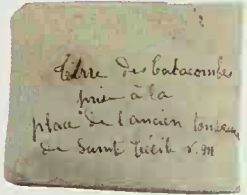 Terre des Catacombes
prise à la
place de l'ancien tombeau
de Sainte Cécile V. M